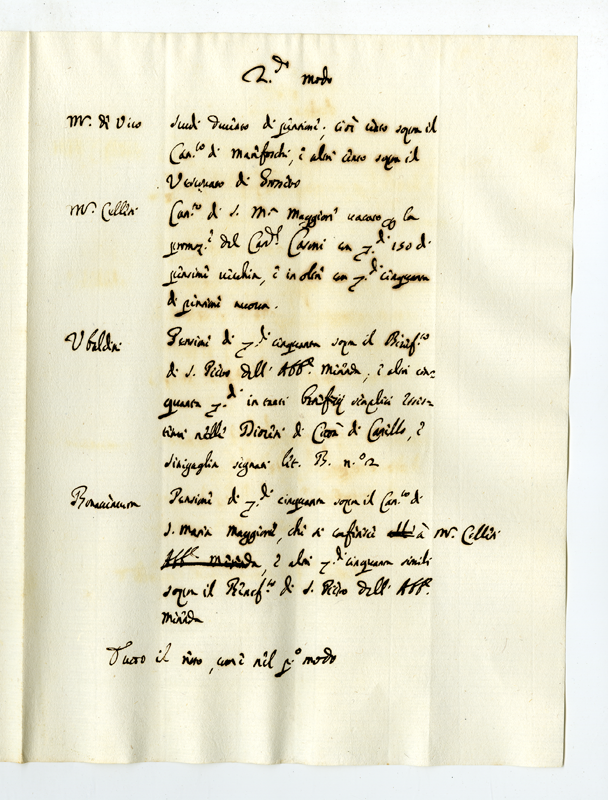 2.do modo
Mr. de Vico Scudi ducento di pensioni, cioè cento sopra il
Can.to di Monsoschi, e altri cento sopra il
Vescovato di
Mr. Cellini Can.to di S. M.a Maggiore vacato per la
promoz.e del Card.l Casoni con z.di 150 di
pensioni vecchia, e in oltre con z.di cinquanta
di pensione nuova.
Ubaldini Pensione di z.di cinquanta sopra il Benef.to
di S. Pietro dell' Abb.e Miranda, e altri cin=
quanta z.di in tanti benefizij semplici esis=
tenti nelle Diocesi di Città di Castello, e
Sinigaglia segnati lit. B. n.o 2
Bonaventura Pensione di z.di cinquanta sopra il Can.to di
S. Maria Maggiore, che si conferisce à Mr. Cellini
Abb.e Miranda, e altri z.di cinquanta simili
sopra il Benef.to di S. Pietro dell' Abb.e
Miranda
Tutto il resto, come nel p.o modo